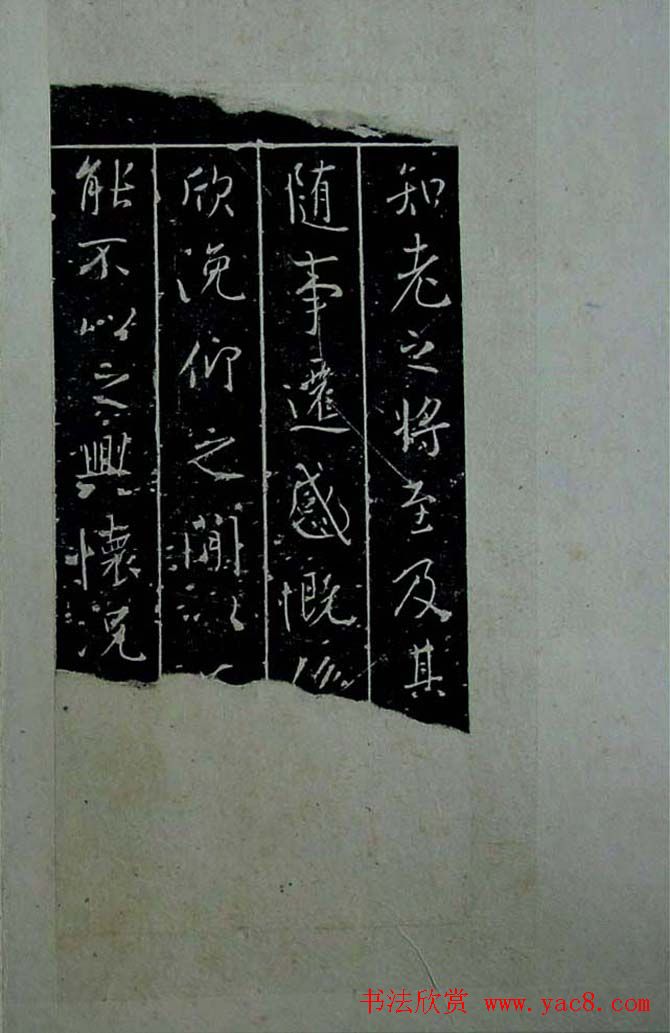 知老之将至及其
随事遷感慨係
欣俛仰之間以
能不以之興懷況
书法欣赏 www.yac8.com